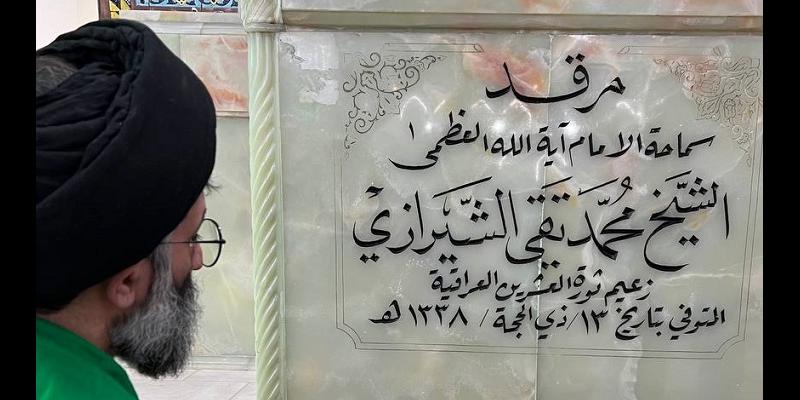 مرقد
سماحة الامام آية الله العظمى
الشَّيْخ مُحَمَّد تَقي الشِّيرازيْ
زعيم ثورة العشرين العراقية
المتوفي بتاريخ ١٣/ذي الحجة/ ١٣٣٨ هـ